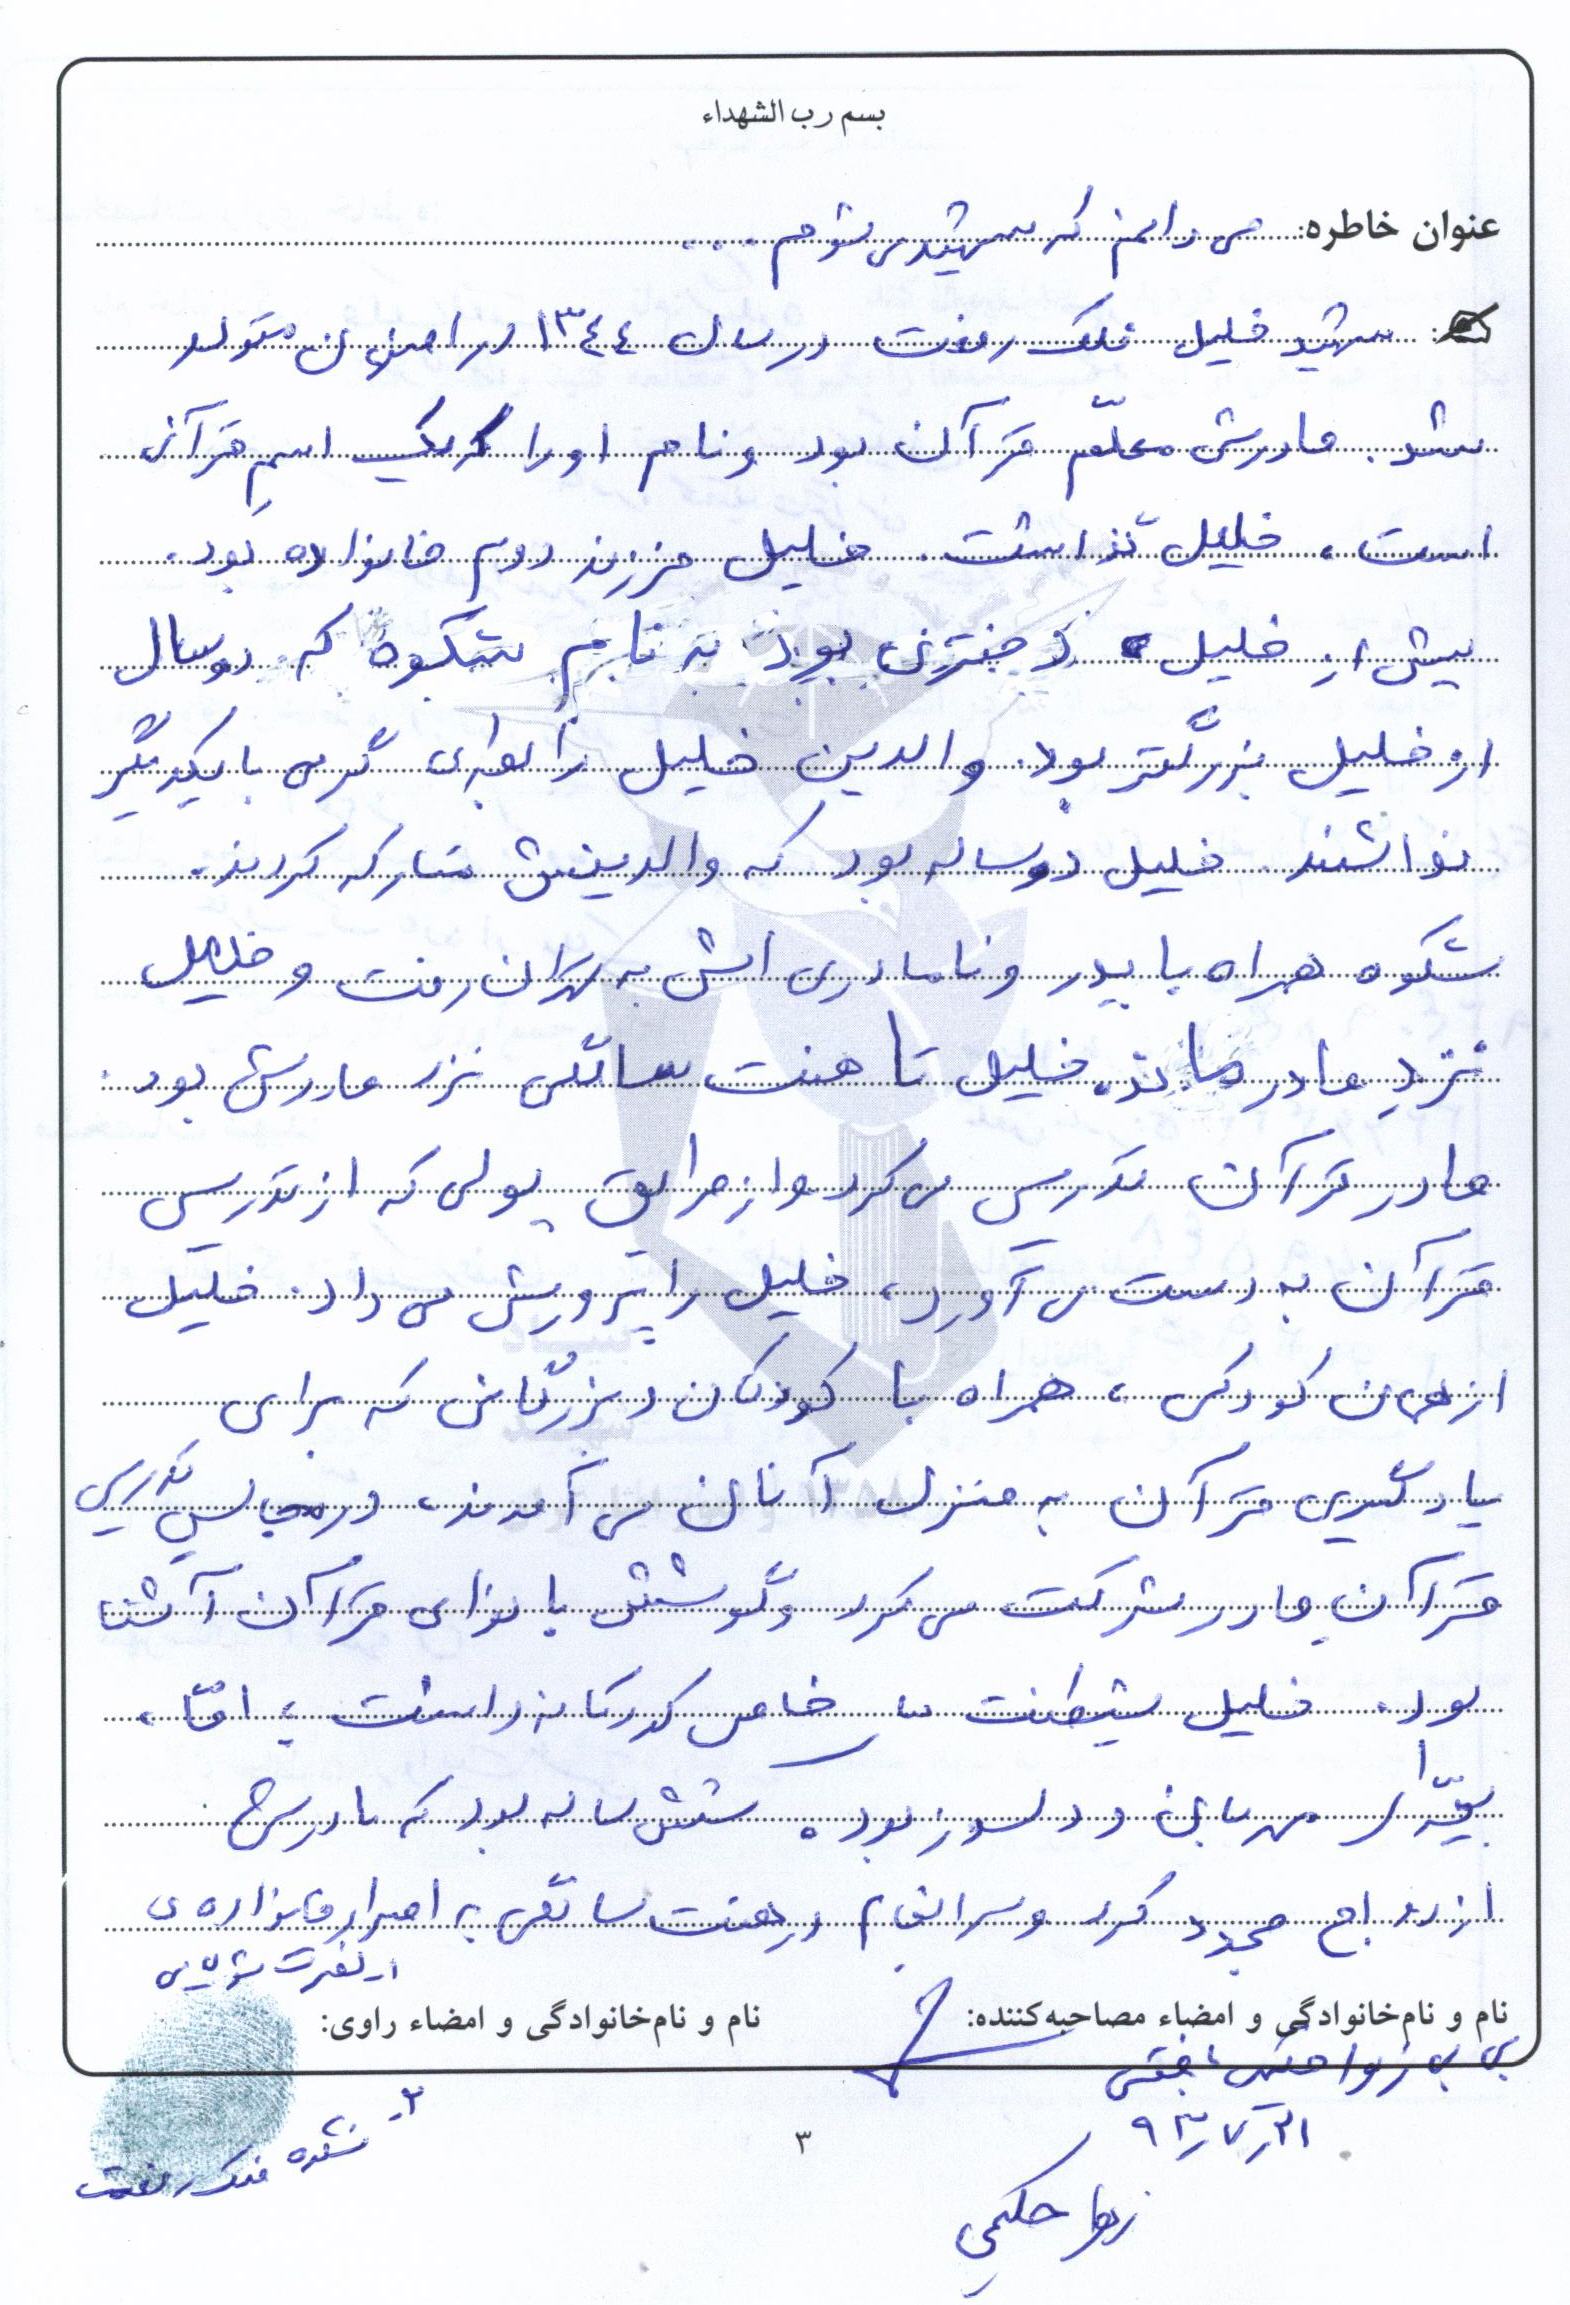 بسم رب الشهداء
عنوان خاطره: می دانم که شهید می شوم ...
شهید خلیل فلک رفعت در سال ۱۳۴۴ در اصفهان متولد
شد. مادرش معلّم قرآن بود و نام او را که یک اسمِ قرآنی
است، خلیل گذاشت. خلیل فرزند دوم خانواده بود.
پیش از خلیل دختری بود به نام شکوه که دو سال
از خلیل بزرگتر بود. والدین خلیل رابطه‌ی گرمی با یکدیگر
نداشتند. خلیل دو ساله بود که والدینش متارکه کردند.
شکوه همراه با پدر و نامادری اش به تهران رفت و خلیل
نزدِ مادر ماند. خلیل تا هفت سالگی نزد مادرش بود.
مادر قرآن تدریس می کرد و از طریق پولی که از تدریس
قرآن به دست می آورد، خلیل را پرورش می داد. خلیل
از همان کودکی، همراه با کودکان و بزرگانی که برای
یادگیری قرآن به منزل آنان می آمدند، در مجالس تدریس
قرآن مادر شرکت می کرد و گوشش با نوای قرآن آشنا
بود. خلیل شیطنت های خاص کودکانه داشت ؛ امّا،
مهربان و دلسوز بود. شش ساله بود که مادرش
ازدواج مجدد کرد و سرانجام در هفت سالگی به اصرار خانواده ی
نام و نام‌خانوادگی و امضاء مصاحبه‌کننده:
نام و نام‌خانوادگی و امضاء راوی:
بی بی زهرا حکیمی
۹۳٫۷٫۲۱
۲-
فلک رفعت
۳
زهرا حکیمی